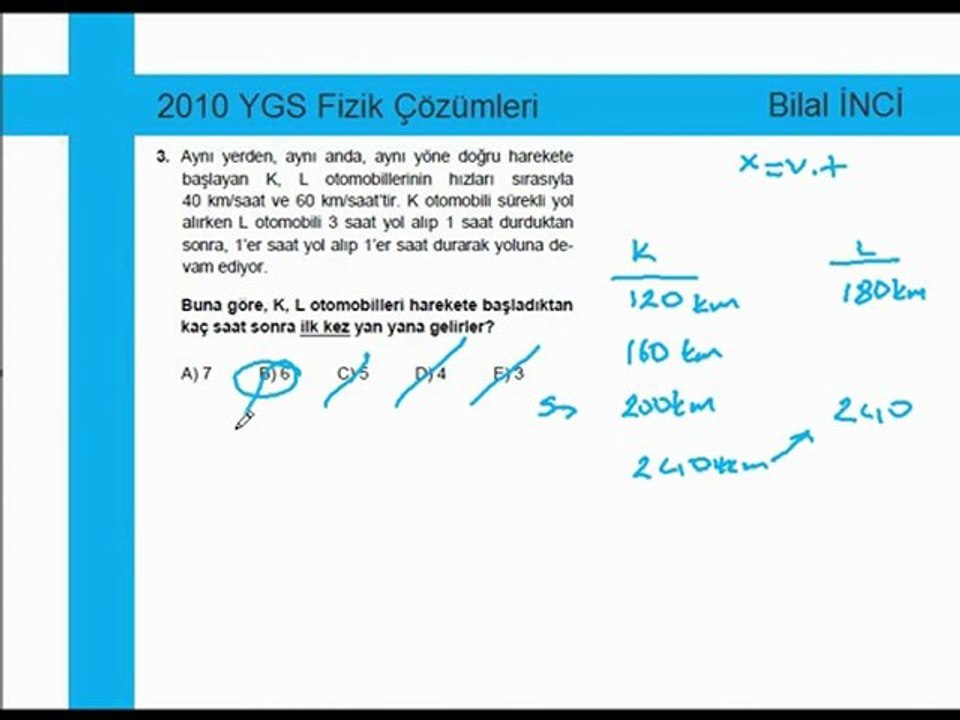 2010 YGS Fizik Çözümleri
Bilal İNCİ
3. Aynı yerden, aynı anda, aynı yöne doğru harekete
başlayan K, L otomobillerinin hızları sırasıyla
40 km/saat ve 60 km/saat'tir. K otomobili sürekli yol
alırken L otomobili 3 saat yol alıp 1 saat durduktan
sonra, 1'er saat yol alıp 1'er saat durarak yoluna de-
vam ediyor.
Buna göre, K, L otomobilleri harekete başladıktan
kaç saat sonra ilk kez yan yana gelirler?
A) 7 B) 6 C) 5 D) 4 E) 3
x=v.t
K L
120 km 180km
160 km
5→ 200km 240
240km